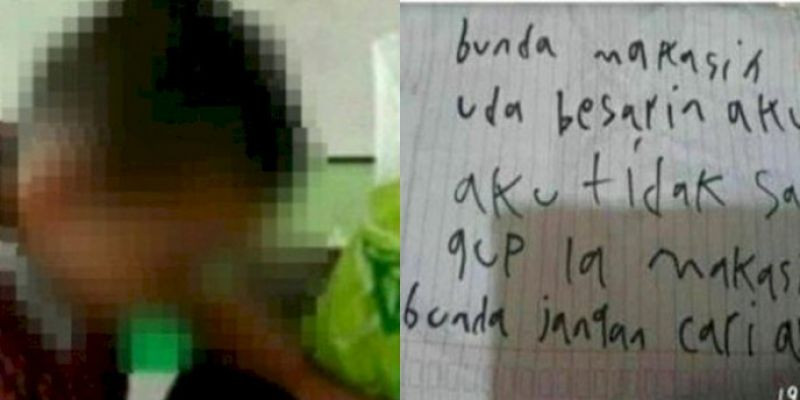 bunda makasih
uda besarin aku
aku tidak sa
gcp la makasi
bunda jangan cari a
19